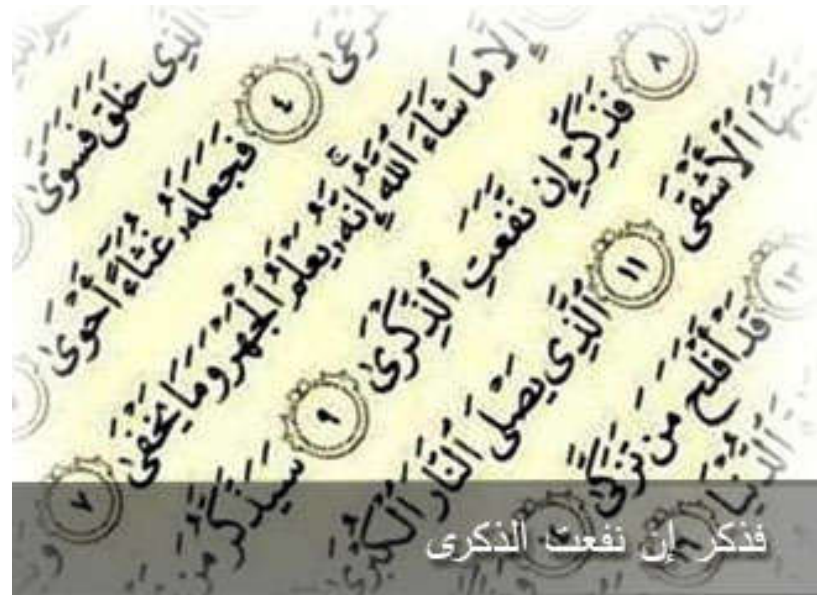 ٱلَّذِى خَلَقَ فَسَوَّىٰ
٤ فَجَعَلَهُۥ غُثَآءً أَحْوَىٰ
إِلَّا مَا شَآءَ ٱللَّهُ إِنَّهُۥ يَعْلَمُ ٱلْجَهْرَ وَمَا يَخْفَىٰ ٧
٨ فَذَكِّرْ إِن نَّفَعَتِ ٱلذِّكْرَىٰ ٩ سَيَذَّكَّرُ مَن
ٱلْأَشْقَى ١١ ٱلَّذِى يَصْلَى ٱلنَّارَ ٱلْكُبْرَىٰ
١٣ قَدْ أَفْلَحَ مَن تَزَكَّىٰ
ٱلدُّنْيَا ١٦
فذكر إن نفعت الذكرى